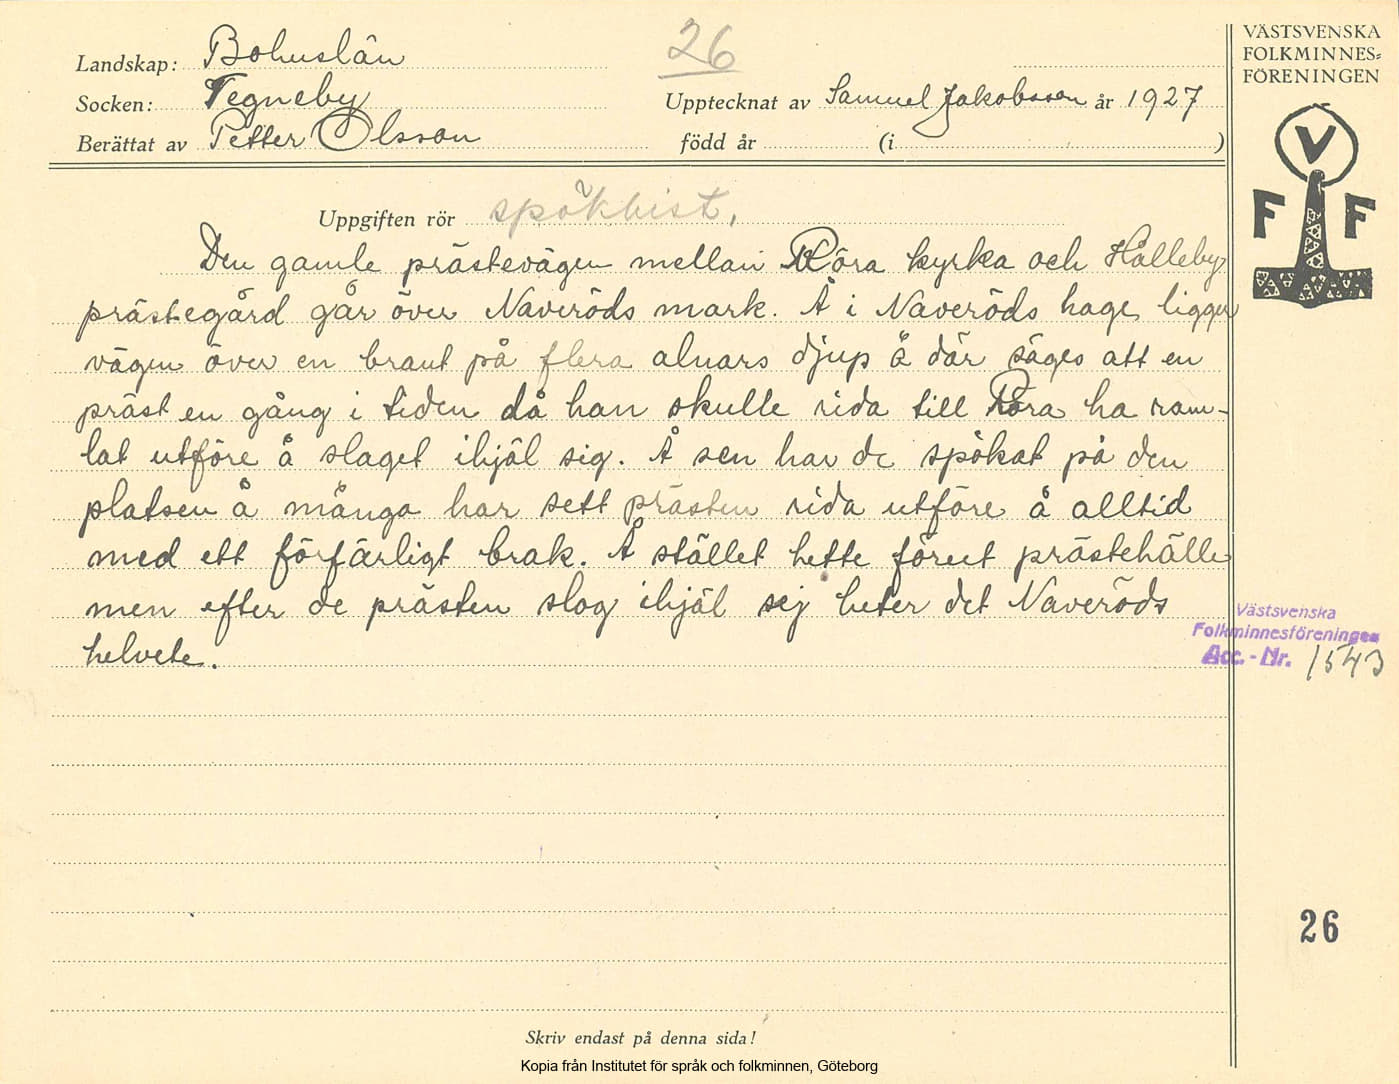 Landskap: Bohuslän
Socken: Tegneby
Berättat av Petter Olsson
26
Upptecknat av Samuel Jakobsson år 1927
född år (i )
VÄSTSVENSKA
FOLKMINNES-
FÖRENINGEN
V
F F
Uppgiften rör spökhist.
Den gamle prästevägen mellan Röra kyrka och Hålleby
prästegård går över Naveröds mark. Å i Naveröds hage ligger
vägen över en brant på flera alnars djup å där säges att en
präst en gång i tiden då han skulle rida till Röra ha ram-
lat utföre å slaget ihjäl sig. Å sen har de spökat på den
platsen å många har sett prästen rida utföre å alltid
med ett förfärligt brak. Å stället hette föreut prästehälle
men efter de prästen slog ihjäl sej heter det Naveröds
helvete.
Västsvenska
Folkminnesföreningen
Acc.-Nr. 1543
26
Skriv endast på denna sida!
Kopia från Institutet för språk och folkminnen, Göteborg